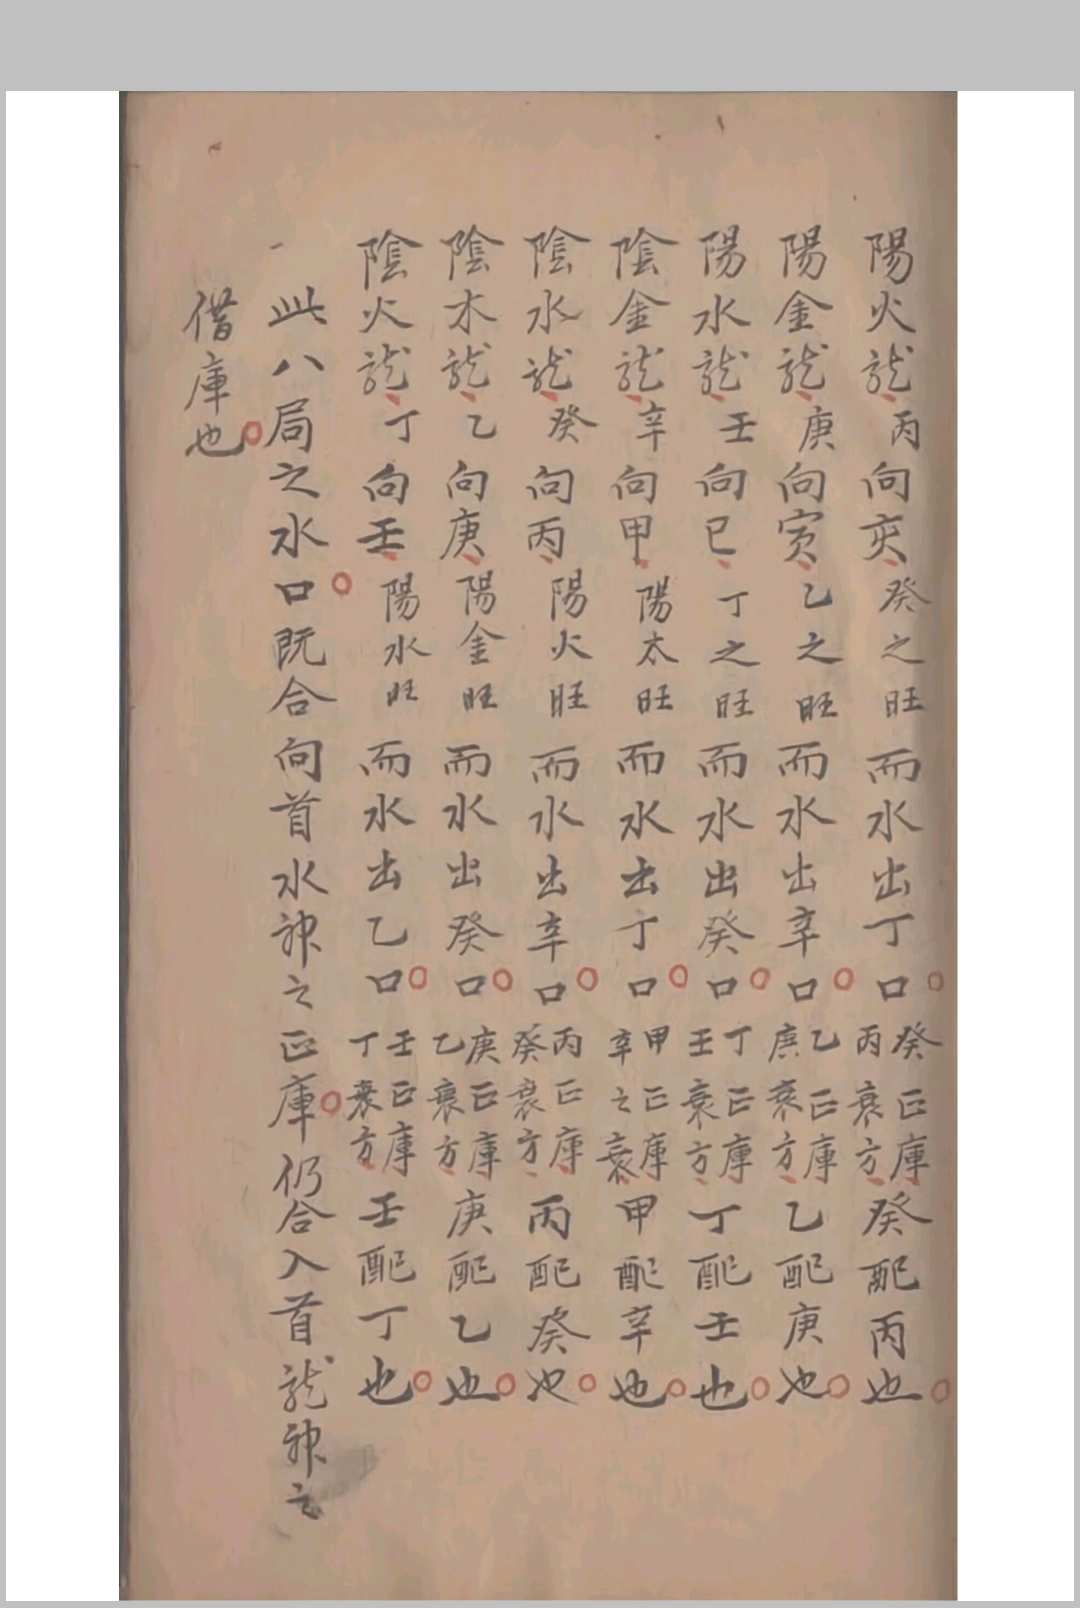 陽火龍丙向亥癸之旺而水出丁口癸正庫丙衰方癸配丙也
陽金龍庚向寅乙之旺而水出辛口乙正庫庚衰方乙配庚也
陽水龍壬向巳丁之旺而水出癸口丁正庫壬衰方丁配壬也
陰金龍辛向甲陽太旺而水出丁口甲正庫辛之衰甲配辛也
陰水龍癸向丙陽火旺而水出辛口丙正庫癸衰方丙配癸也
陰木龍乙向庚陽金旺而水出癸口庚正庫乙衰方庚配乙也
陰火龍丁向壬陽水旺而水出乙口壬正庫丁衰方壬配丁也
一此八局之水口既合向首水神之正庫仍合入首龍神之
借庫也